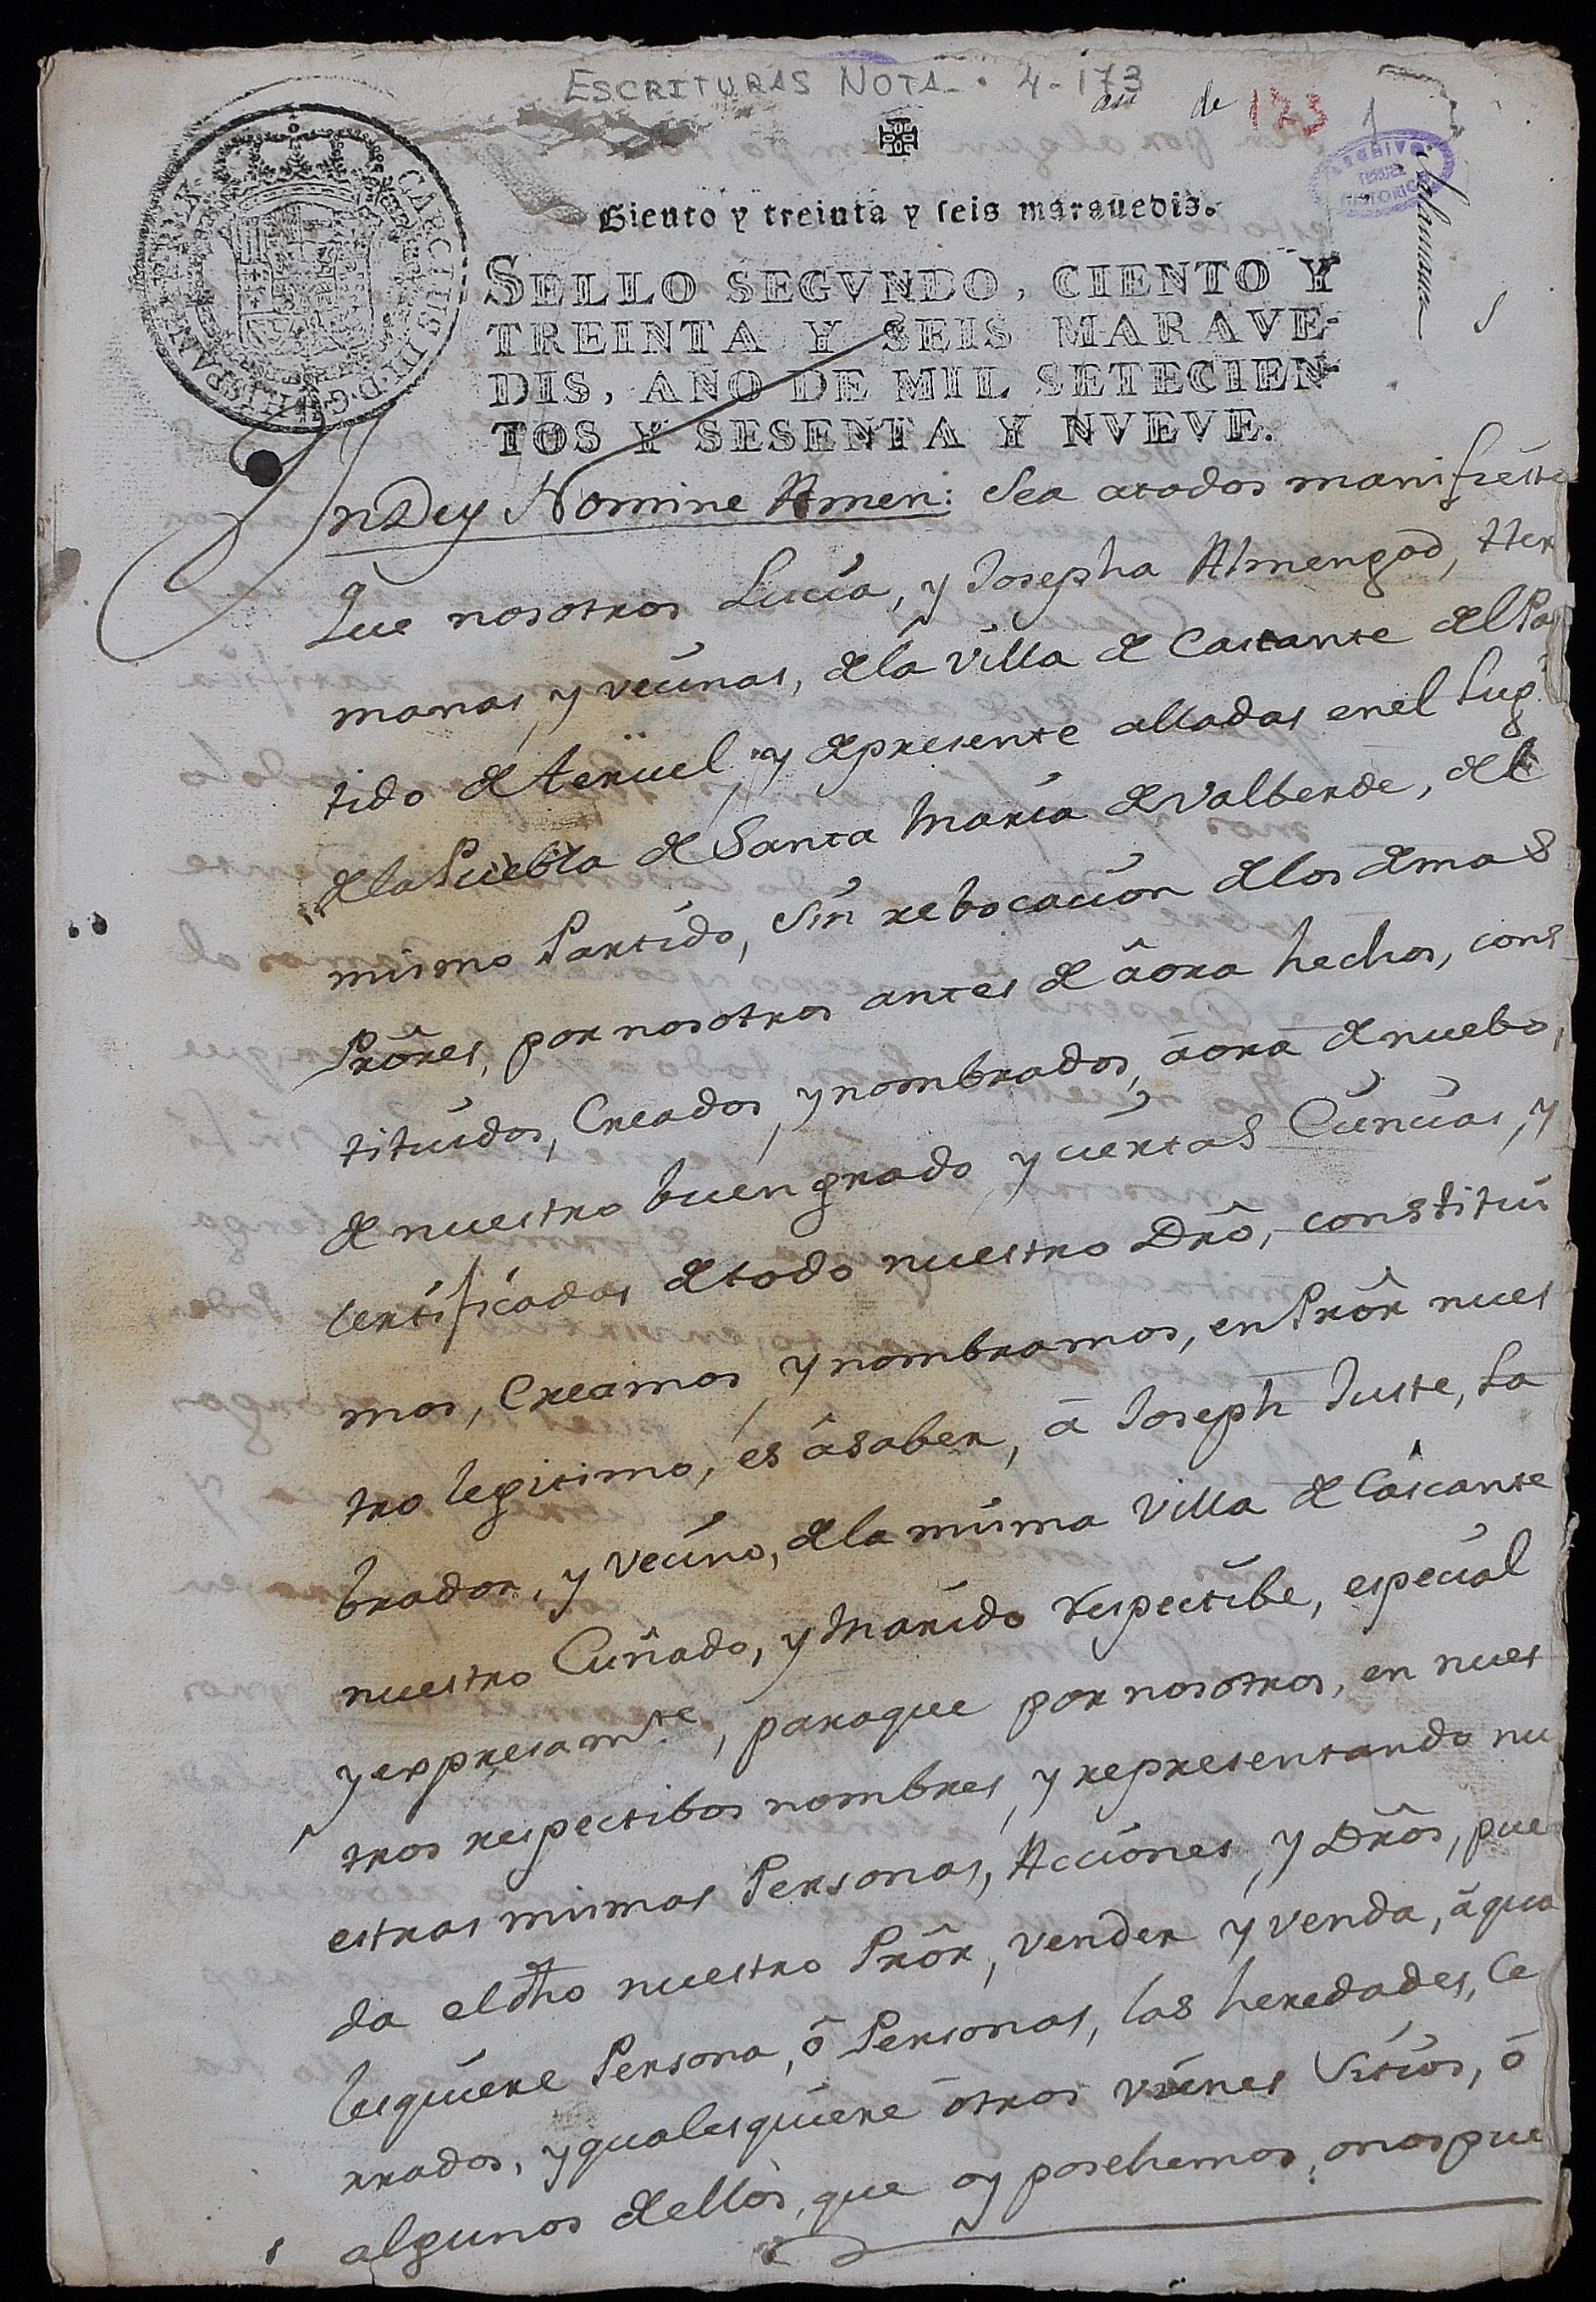 ESCRITURAS NOTA. 4-173
de 173 1
CAROLUS III D.G. HISPANIAR REX
ARCHIVO HISTORICO TERUEL
Ciento y treinta y seis maravedis.
SELLO SEGVNDO, CIENTO Y
TREINTA Y SEIS MARAVE-
DIS, AÑO DE MIL SETECIEN-
TOS Y SESENTA Y NVEVE.
In Dey Nomine Amen: Sea atodos manifiesto
Que nosotros Lucia, y Josepha Almengod, Her
manas y vecinas, dela Villa de Cascante del Par
tido de teruel, y depresente alladas enel Lugr
dela Puebla de Santa Maria de Valberde, del
mismo Partido, sin rebocacion delos demas
Prôres, por nosotros antes de âora hechos, cons
tituidos, Creados, y nombrados, âora denuebo,
de nuestro buen grado y ciertas Ciencias, y
Certificadas detodo nuestro Drô, constitui
mos, Creamos, y nombramos, en Prôr nues
tro legitimo, es âsaber, â Joseph Juste, La
brador, y Vecino, dela misma Villa de Cascante
nuestro Cuñado, y Marido respectibe, especial
y expresamte, paraque por nosotros, en nues
tros respectibos nombres, y representando nu
estras mismas Personas, Acciones, y Drôs, pue
da eldho nuestro Prôr, vender y venda, âqua
lesquiere Persona, ô Personas, las heredades, Ce
rrados, y qualesquiere ôtros vienes Sitios, ô
algunos dellos, que oy posehemos, onospue